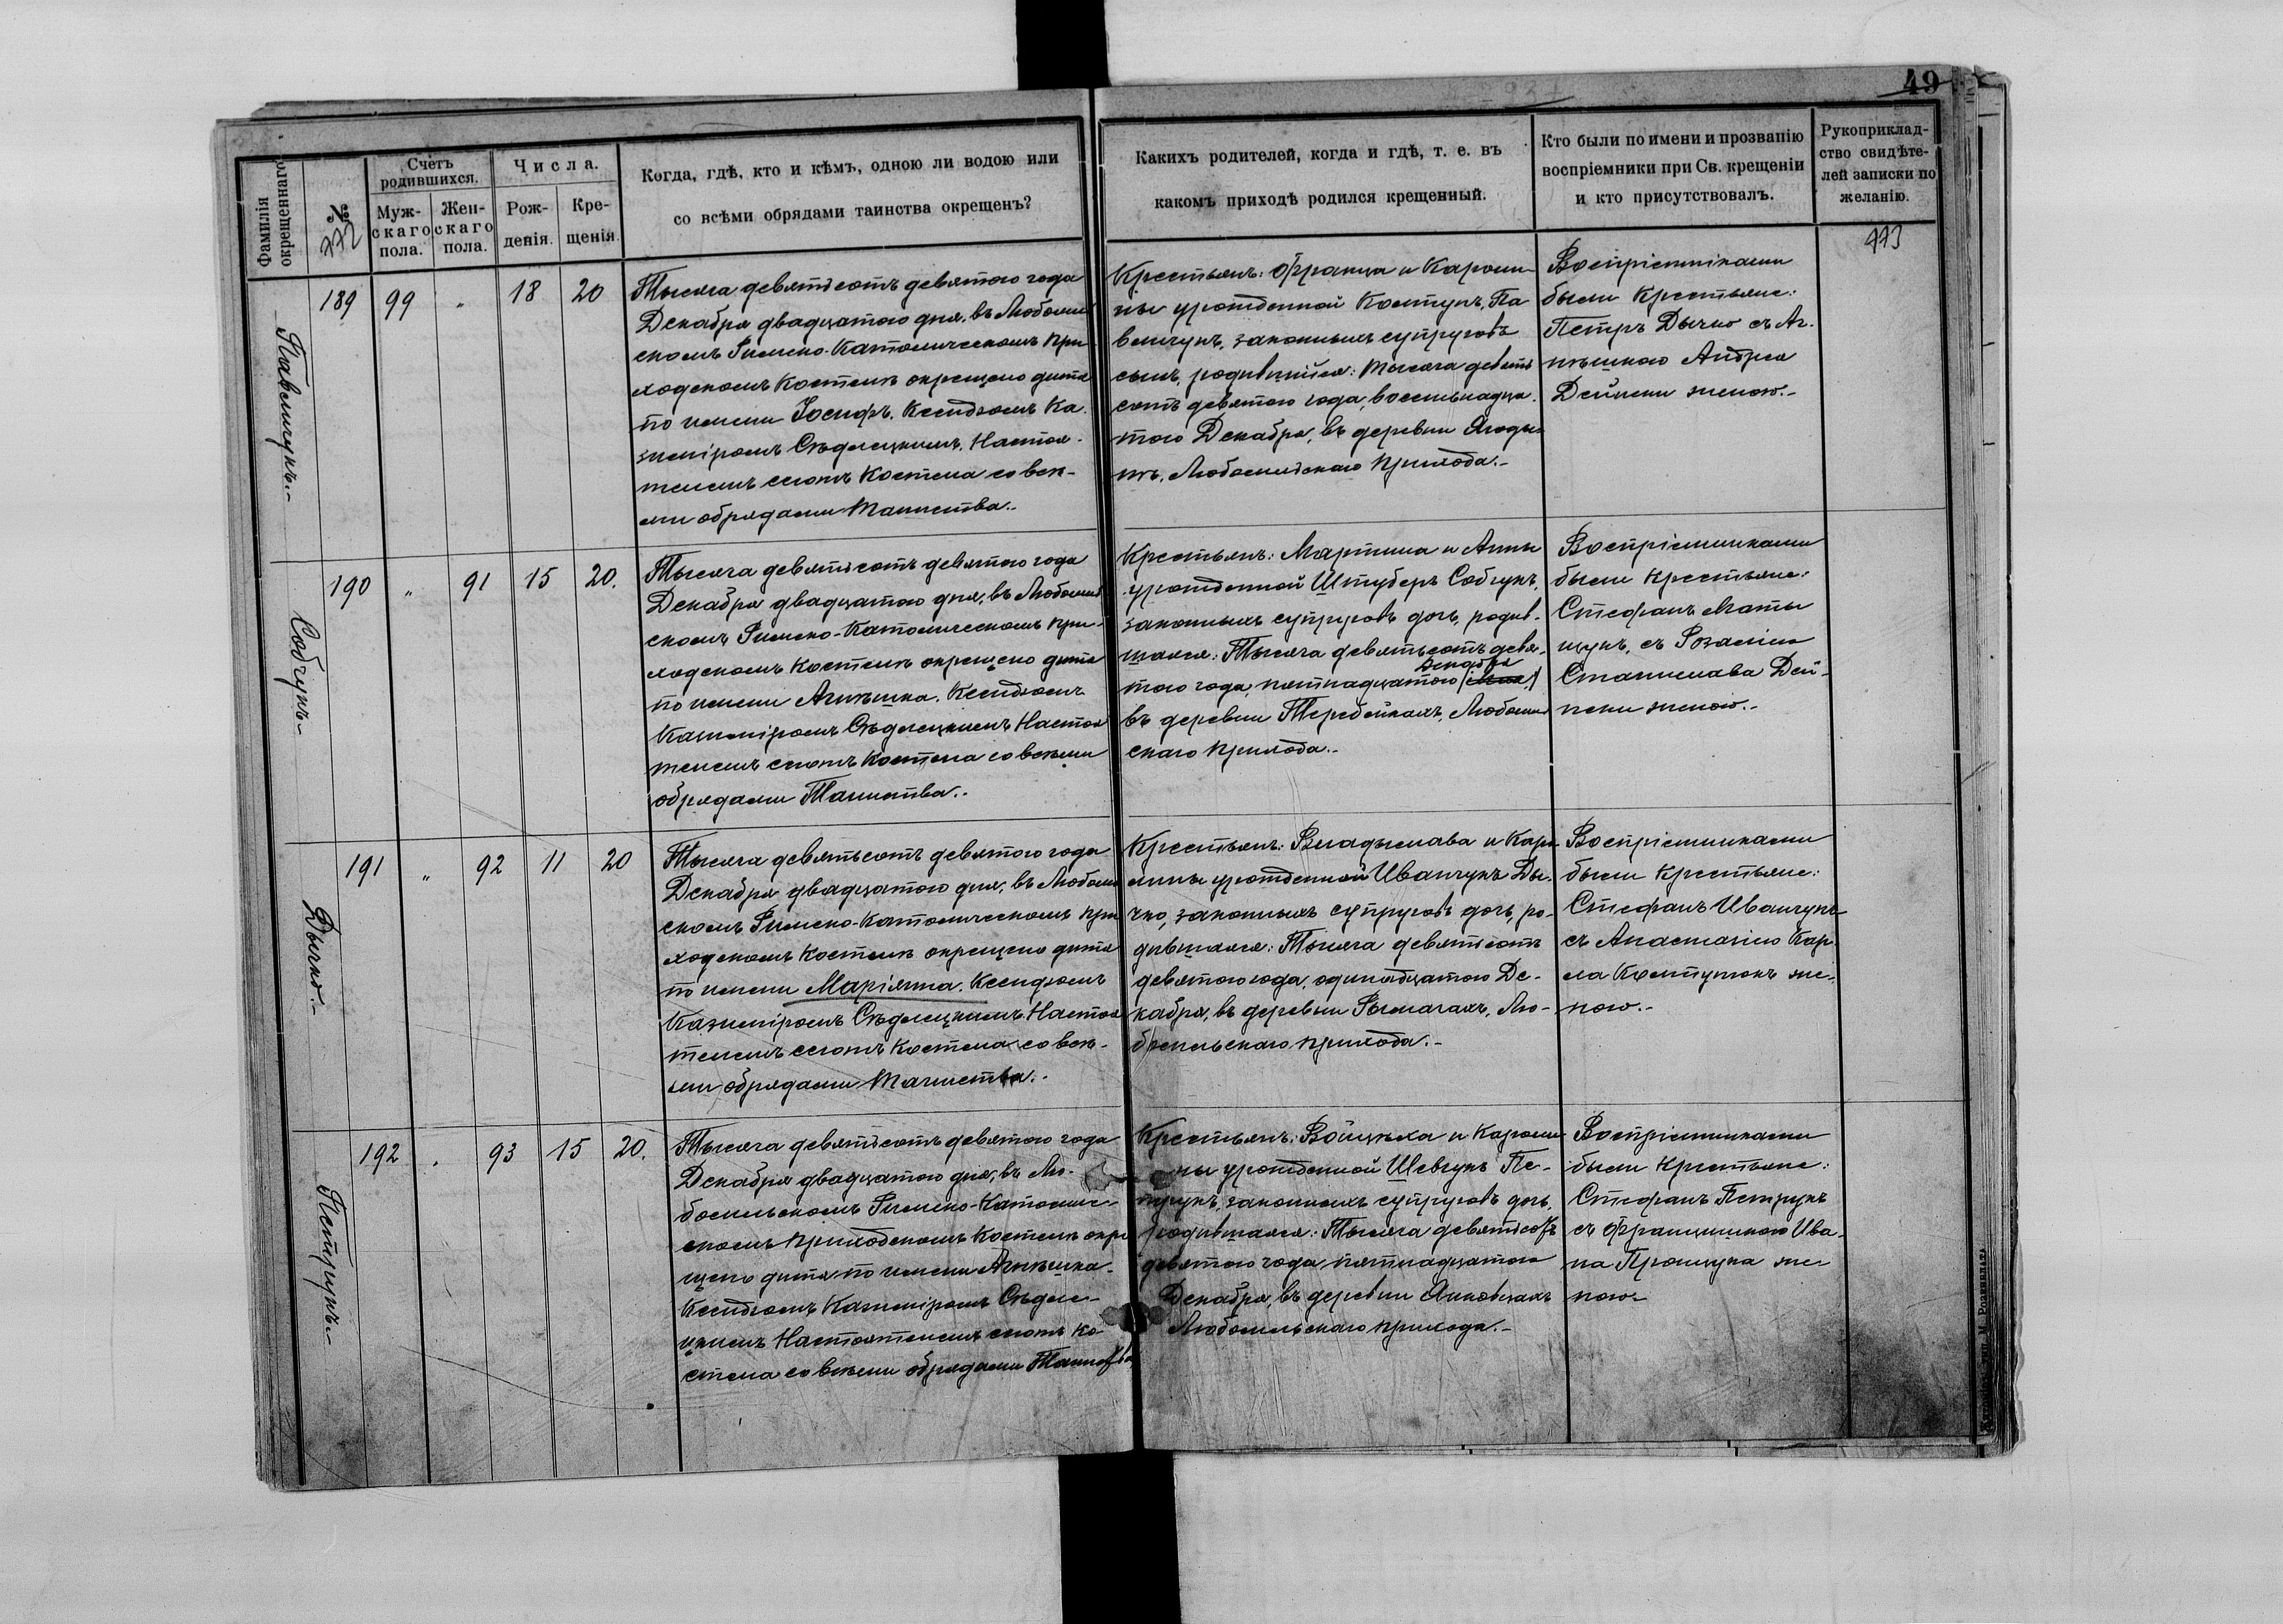 49
Фамилія окрещеннаго
№
772
Счетъ родившихся.
Мужскаго пола.
Женскаго пола.
Числа.
Рожденія.
Крещенія.
Когда, гдѣ, кто и кѣмъ, одною ли водою или
со всѣми обрядами таинства окрещенъ?
Какихъ родителей, когда и гдѣ, т. е. въ
какомъ приходѣ родился крещенный.
Кто были по имени и прозванію
воспріемники при Св. крещеніи
и кто присутствовалъ.
Рукоприклад-
ство свидѣте-
лей записки по
желанію.
773
Павлчукъ.-
189 99 „ 18 20
Тысяча девятьсотъ девятого года
Декабря двадцатого дня, въ Любомль
скомъ Римско-Католическомъ при
ходскомъ Костелѣ окрещено дитя
по имени Іосифъ. Ксендзомъ Ка-
зиміромъ Сѣдлецкимъ, Настоя-
телемъ сегожъ Костела со всѣ-
ми обрядами Таинства.-
Крестьянъ: Франца и Кароли-
ны урожденной Колтунъ, Па
влчукъ, законныхъ супруговъ
сынъ, родившійся: тысяча девять
сотъ девятого года, восемнадца-
того Декабря, въ деревни Ягоды-
нѣ, Любомльскаго прихода.-
Воспріемниками
были Крестьяне:
Петръ Дычко съ Аг-
нѣшкою Андрея
Дейнеки женою.-
Собчукъ.-
190 „ 91 15 20.
Тысяча девятьсотъ девятого года
Декабря двадцатого дня, въ Любомль
скомъ Римско-Католическомъ при-
ходскомъ Костелѣ окрещено дитя
по имени Агнѣшка. Ксендзомъ
Казиміромъ Сѣдлецкимъ Настоя
телемъ сегожъ Костела со всѣми
обрядами Таинства.-
Крестьянъ: Мартина и Анны
урожденной Штуберъ Собчукъ,
законныхъ супруговъ дочь, родив-
шаяся: Тысяча девятьсотъ девя-
Декабря
того года, пятнадцатого
въ деревни Теребейкахъ, Любомль
скаго прихода.-
Воспріемниками
были Крестьяне:
Стефанъ Маты
щукъ, съ Розаліею
Станислава Дей-
неки женою.-
Дычко.-
191 „ 92 11 20
Тысяча девятьсотъ девятого года
Декабря двадцатого дня, въ Любомль
скомъ Римско-Католическомъ при
ходскомъ Костелѣ окрещено дитя
по имени Маріянна. Ксендзомъ
Казиміромъ Сѣдлецкимъ Настоя
телемъ сегожъ Костела со всѣ-
ми обрядами Таинства.-
Крестьянъ: Владыслава и Каро
лины урожденной Иванчукъ Ды-
чко, законныхъ супруговъ дочь, ро-
дившаяся: Тысяча девятьсотъ
девятого года, одинадцатого Де-
кабря, въ деревни Рымачахъ, Лю-
бомльскаго прихода.-
Воспріемниками
были Крестьяне:
Стефанъ Иванчукъ
съ Анастазіею Кар-
ла Колтунюкъ же-
ною.-
Петрукъ.-
192 „ 93 15 20.
Тысяча девятьсотъ девятого года
Декабря двадцатого дня, въ Лю-
бомльскомъ Римско-Католиче-
скомъ приходскомъ Костелѣ окре
щено дитя по имени Агнѣшка.
Ксендзомъ Казиміромъ Сѣдле-
цкимъ Настоятелемъ сегожъ Ко-
стела со всѣми обрядами Таинства
Крестьянъ: Войцѣха и Кароли
ны урожденной Шевчукъ Пе-
трукъ, законныхъ супруговъ дочь,
родившаяся: Тысяча девятьсотъ
девятого года, пятнадцатого
Декабря, въ деревни Янковцахъ
Любомльскаго прихода.-
Воспріемниками
были Крестьяне:
Стефанъ Петрукъ
съ Францишкою Ива-
на Прощука же-
ною.-